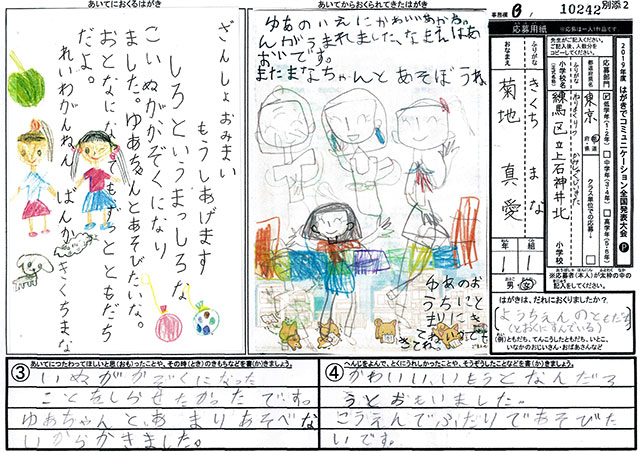 事務機 B
10242
別添2
あいてにおくるはがき
ざんしょおみまい
もうしあげます
しろというまっしろな
こいぬがかぞくになり
ました。ゆあちゃんとあそびたいな。
おとなになっても ずっとともだち
だよ。
れいわがんねん ばんか
きくちまな
あいてからおくられてきたはがき
ゆあのいえにかわいいあかちゃ
んがうまれました、なまえはあ
おいです。
またまなちゃんとあそぼうね
ゆあの
おうちに
とまりに
きてね。
応募用紙
※応募は一人1作品です
先生がご記入ください。
ご記入後、人数分を
コピーしてください。
2019年度 はがきでコミュニケーション全国発表大会
応募部門
低学年(1・2年)
中学年(3・4年)
高学年(5・6年)
都道府県名
東京
小学校名
練馬区立上石神井北
小学校
クラス単位での応募
ふりがな
きくち まな
おなまえ
菊地 真愛
年 組
1 1
男 女
※応募者(本人)が太枠の中の
記入をしてください。
はがきは、だれにおくりましたか?
ようちえんのともだち
(とおくにすんでいる)
(例)ともだち、てんこうしたともだち、いとこ、
いなかのおじいさん・おばあさんなど
③ あいてにつたわってほしいと思(おも)ったことや、その時(とき)のきもちなどを書(か)きましょう。
いぬがかぞくになった
ことをしらせたかったです。
ゆあちゃんと、あまりあそべな
いからかきました。
④ へんじをよんで、とくにうれしかったことや、そうぞうしたことなどを書(か)きましょう。
かわいい、いもうとなんだろ
うとおもいました。
こうえんでふたりであそびた
いです。